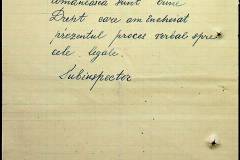 românească sunt bune
Drept care am încheiat
prezentul proces verbal spre
cele legale.
Subinspector